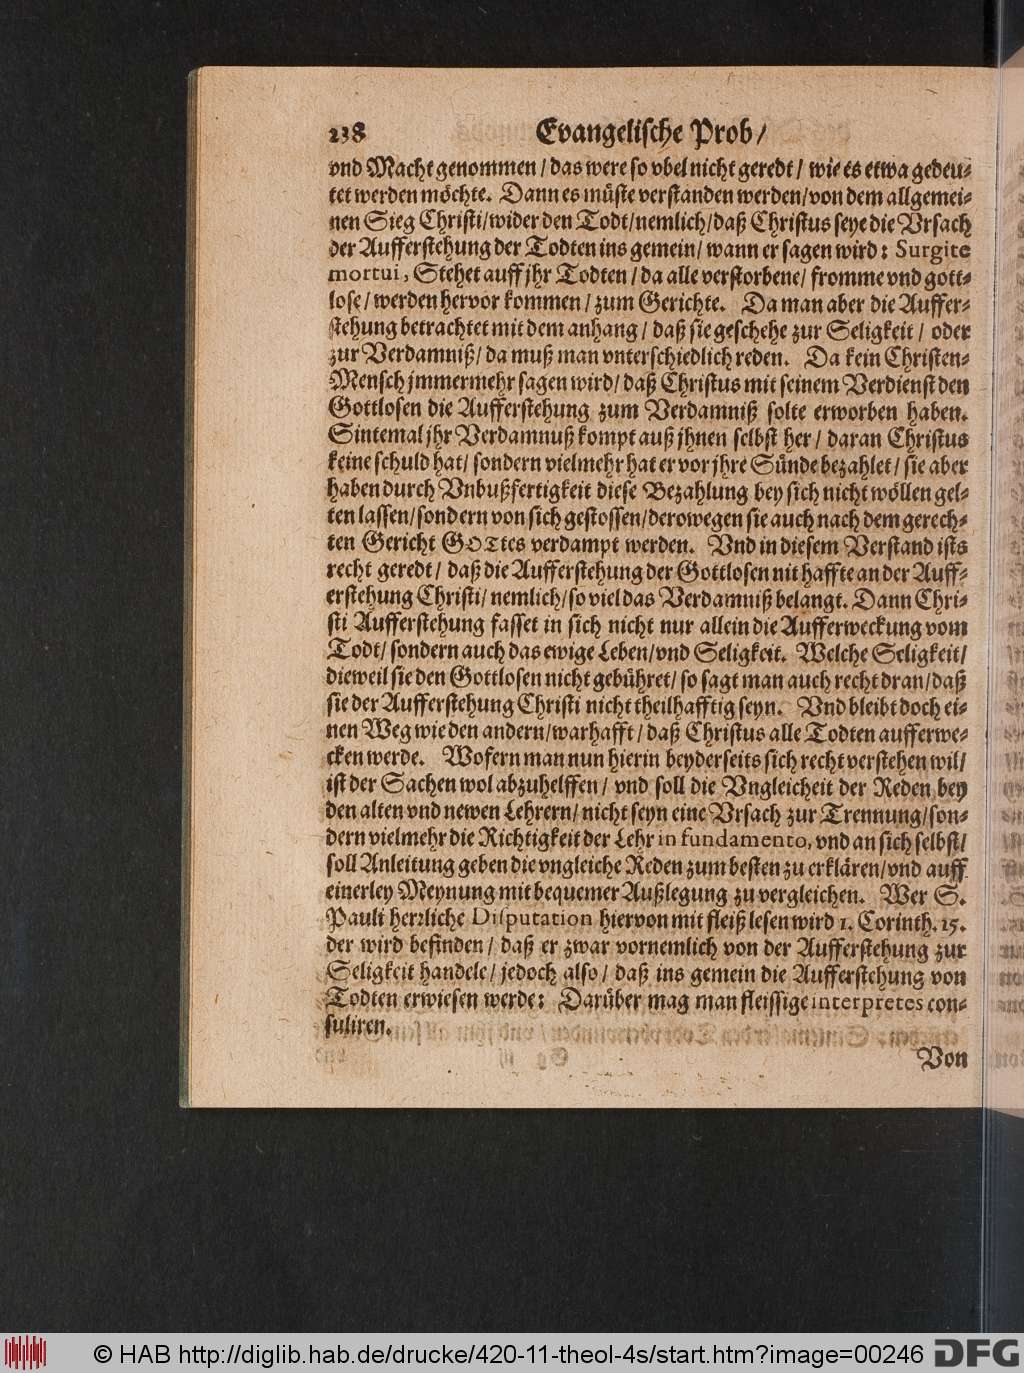 238 Evangelische Prob/
vnd Macht genommen/ das were so vbel nicht geredt/ wie es etwa gedeu-
tet werden möchte. Dann es müste verstanden werden/ von dem allgemei-
nen Sieg Christi/ wider den Todt/ nemlich/ daß Christus seye die Vrsach
der Aufferstehung der Todten ins gemein/ wann er sagen wird: Surgite
mortui, Stehet auff jhr Todten/ da alle verstorbene/ fromme vnd gott-
lose/ werden hervor kommen/ zum Gerichte. Da man aber die Auffer-
stehung betrachtet mit dem anhang/ daß sie geschehe zur Seligkeit/ oder
zur Verdamniß/ da muß man vnterschiedlich reden. Da kein Christen-
Mensch jmmermehr sagen wird/ daß Christus mit seinem Verdienst den
Gottlosen die Aufferstehung zum Verdamniß solte erworben haben.
Sintemal jhr Verdamnuß kompt auß jhnen selbst her/ daran Christus
keine schuld hat/ sondern vielmehr hat er vor jhre Sünde bezahlet/ sie aber
haben durch Vnbußfertigkeit diese Bezahlung bey sich nicht wöllen gel-
ten lassen/ sondern von sich gestossen/ derowegen sie auch nach dem gerech-
ten Gericht GOTtes verdampt werden. Vnd in diesem Verstand ists
recht geredt/ daß die Aufferstehung der Gottlosen nit haffte an der Auff-
erstehung Christi/ nemlich/ so viel das Verdamniß belangt. Dann Chri-
sti Aufferstehung fasset in sich nicht nur allein die Aufferweckung vom
Todt/ sondern auch das ewige Leben/ vnd Seligkeit. Welche Seligkeit/
dieweil sie den Gottlosen nicht gebühret/ so sagt man auch recht dran/ daß
sie der Aufferstehung Christi nicht theilhafftig seyn. Vnd bleibt doch ei-
nen Weg wie den andern/ warhafft/ daß Christus alle Todten aufferwe-
cken werde. Wofern man nun hierin beyderseits sich recht verstehen wil/
ist der Sachen wol abzuhelffen/ vnd soll die Vngleicheit der Reden bey
den alten vnd newen Lehrern/ nicht seyn eine Vrsach zur Trennung/ son-
dern vielmehr die Richtigkeit der Lehr in fundamento, vnd an sich selbst/
soll Anleitung geben die vngleiche Reden zum besten zu erklären/ vnd auff
einerley Meynung mit bequemer Außlegung zu vergleichen. Wer S.
Pauli herrliche Disputation hiervon mit fleiß lesen wird 1. Corinth. 15.
der wird befinden/ daß er zwar vornemlich von der Aufferstehung zur
Seligkeit handele/ jedoch also/ daß ins gemein die Aufferstehung von
Todten erwiesen werde: Darüber mag man fleissige interpretes con-
suliren.
Von
© HAB http://diglib.hab.de/drucke/420-11-theol-4s/start.htm?image=00246 DFG